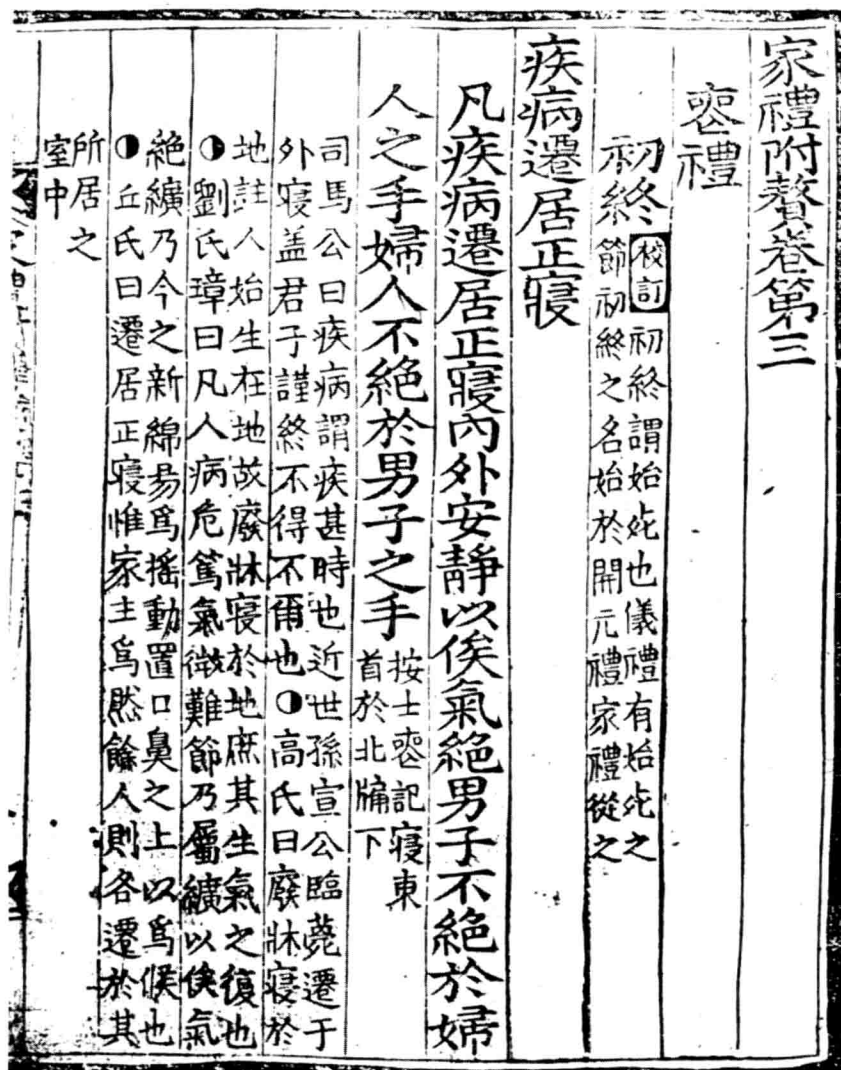 家禮附贅卷第三
喪禮
初終 校訂 初終謂始死也儀禮有始死之
節初終之名始於開元禮家禮從之
疾病遷居正寢
凡疾病遷居正寢內外安靜以俟氣絶男子不絶於婦
人之手婦人不絶於男子之手 按士喪記寢東
首於北牖下
司馬公曰疾病謂疾甚時也近世孫宣公臨薨遷于
外寢盖君子謹終不得不爾也◑高氏曰廢牀寢於
地註人始生在地故廢牀寢於地庶其生氣之復也
◑劉氏璋曰凡人病危篤氣微難節乃屬纊以俟氣
絶纊乃今之新綿易爲搖動置口鼻之上以爲候也
◑丘氏曰遷居正寢惟家主爲然餘人則各遷於其
所居之
室中